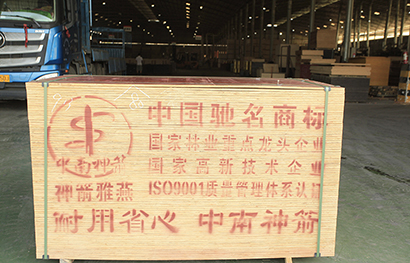 中国驰名商标
国家林业重点龙头企业
国家高新技术企业
ISO9001质量管理体系认证
中南神箭
神箭雅燕
耐用省心 中南神箭